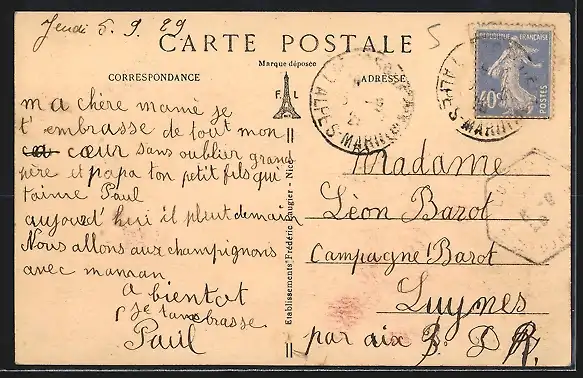 Jeudi 5. 9. 29
5
CARTE POSTALE
Marque déposée
CORRESPONDANCE
F L
ADRESSE
RÉPUBLIQUE FRANÇAISE
40c
POSTES
ALPES-MARIT
ALPES-MARIT
ma chère mamé je
t'embrasse de tout mon
cœur sans oublier grand
père et papa ton petit fils qui
t'aime Paul
aujourd'hui il pleut demain
Nous allons aux champignons
avec maman
a bientot
je tambrasse
Paul
Etablissements Frédéric Laugier - Nice
Madame
Léon Barot
Campagne Barot
Luynes
par aix B. D R.